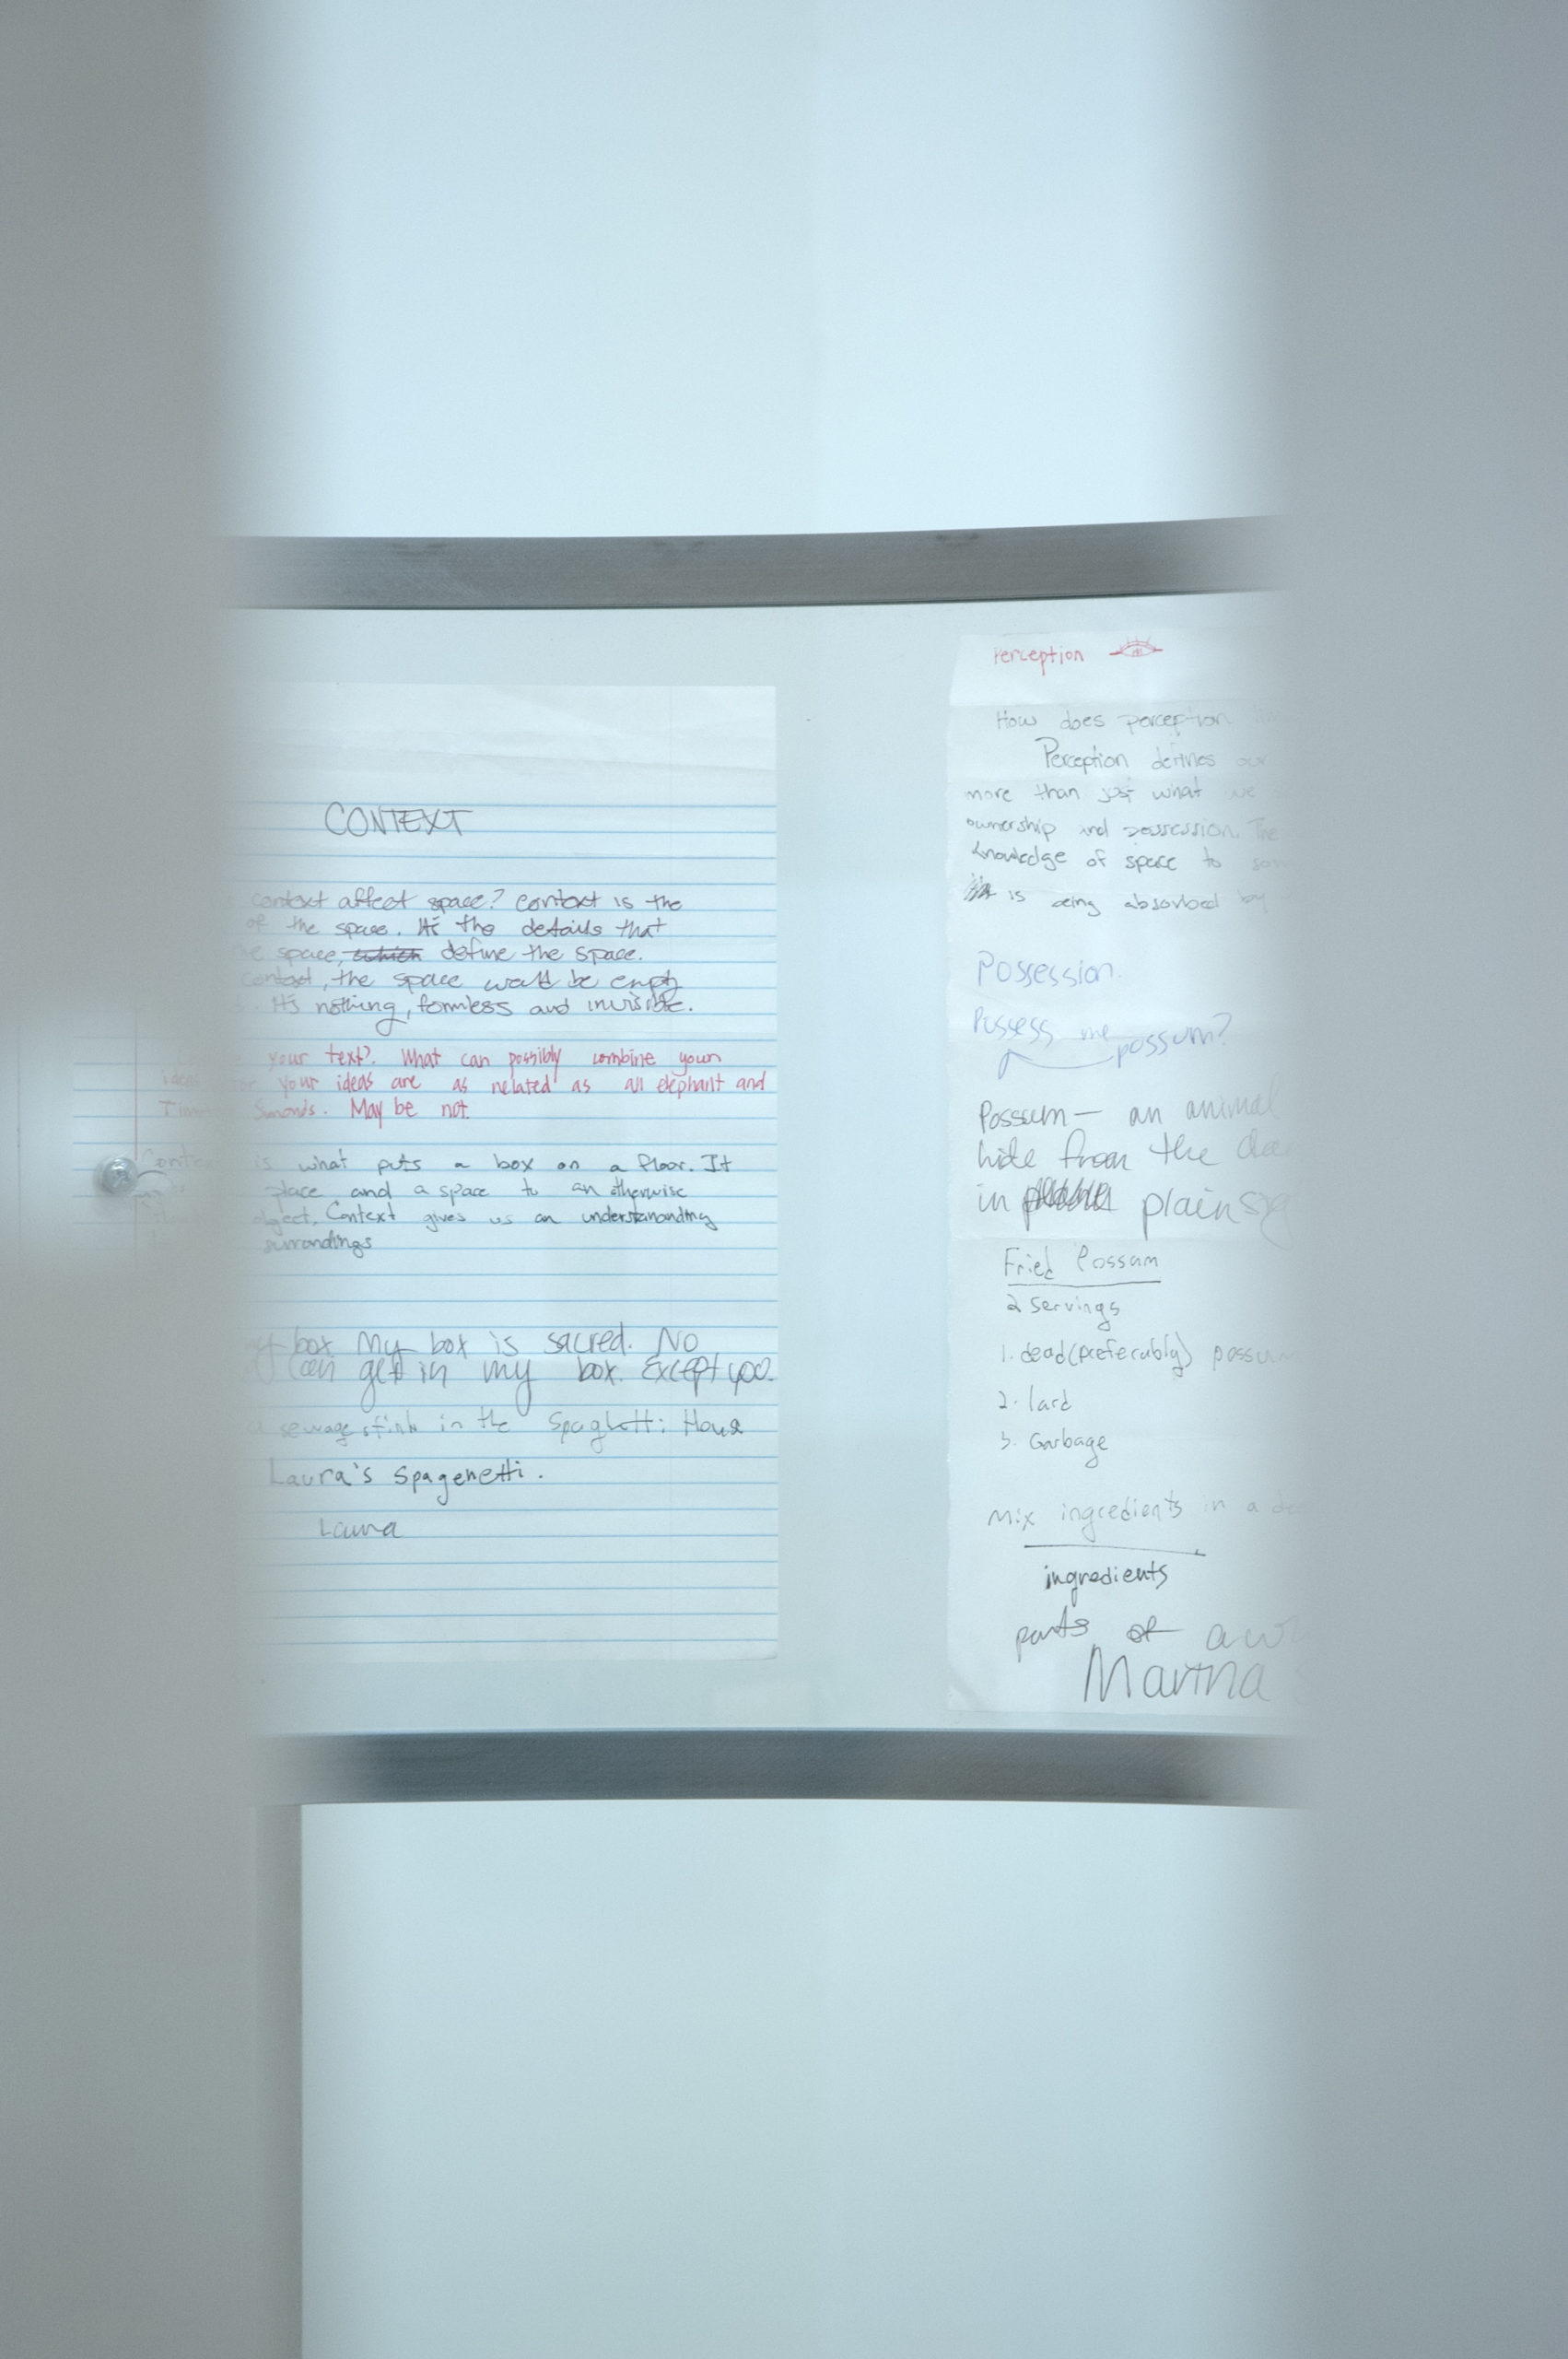 CONTEXT
context affect space? Context is the
of the space. It's the details that
space, which define the space.
context, the space would be empty
It's nothing, formless and invisible.
your text? What can possibly combine your
your ideas are as related as an elephant and
May be not.
is what puts a box on a floor. It
place and a space to an otherwise
object. Context gives us an understananding
surrondings
box My box is sacred. No
can get in my box. Except you.
sewage stink in the Spaghetti House
Laura's Spagehetti.
Laura
Perception
How does perception
Perception defines our
more than just what we
ownership and possession. The
knowledge of space to
is being absorbed by
Possession.
Possess me
possum?
Possum — an animal
hide from the
in plain
Fried Possam
2 servings
1. dead (preferably) possum
2. lard
3. Garbage
Mix ingredients in a
ingredients
parts of a